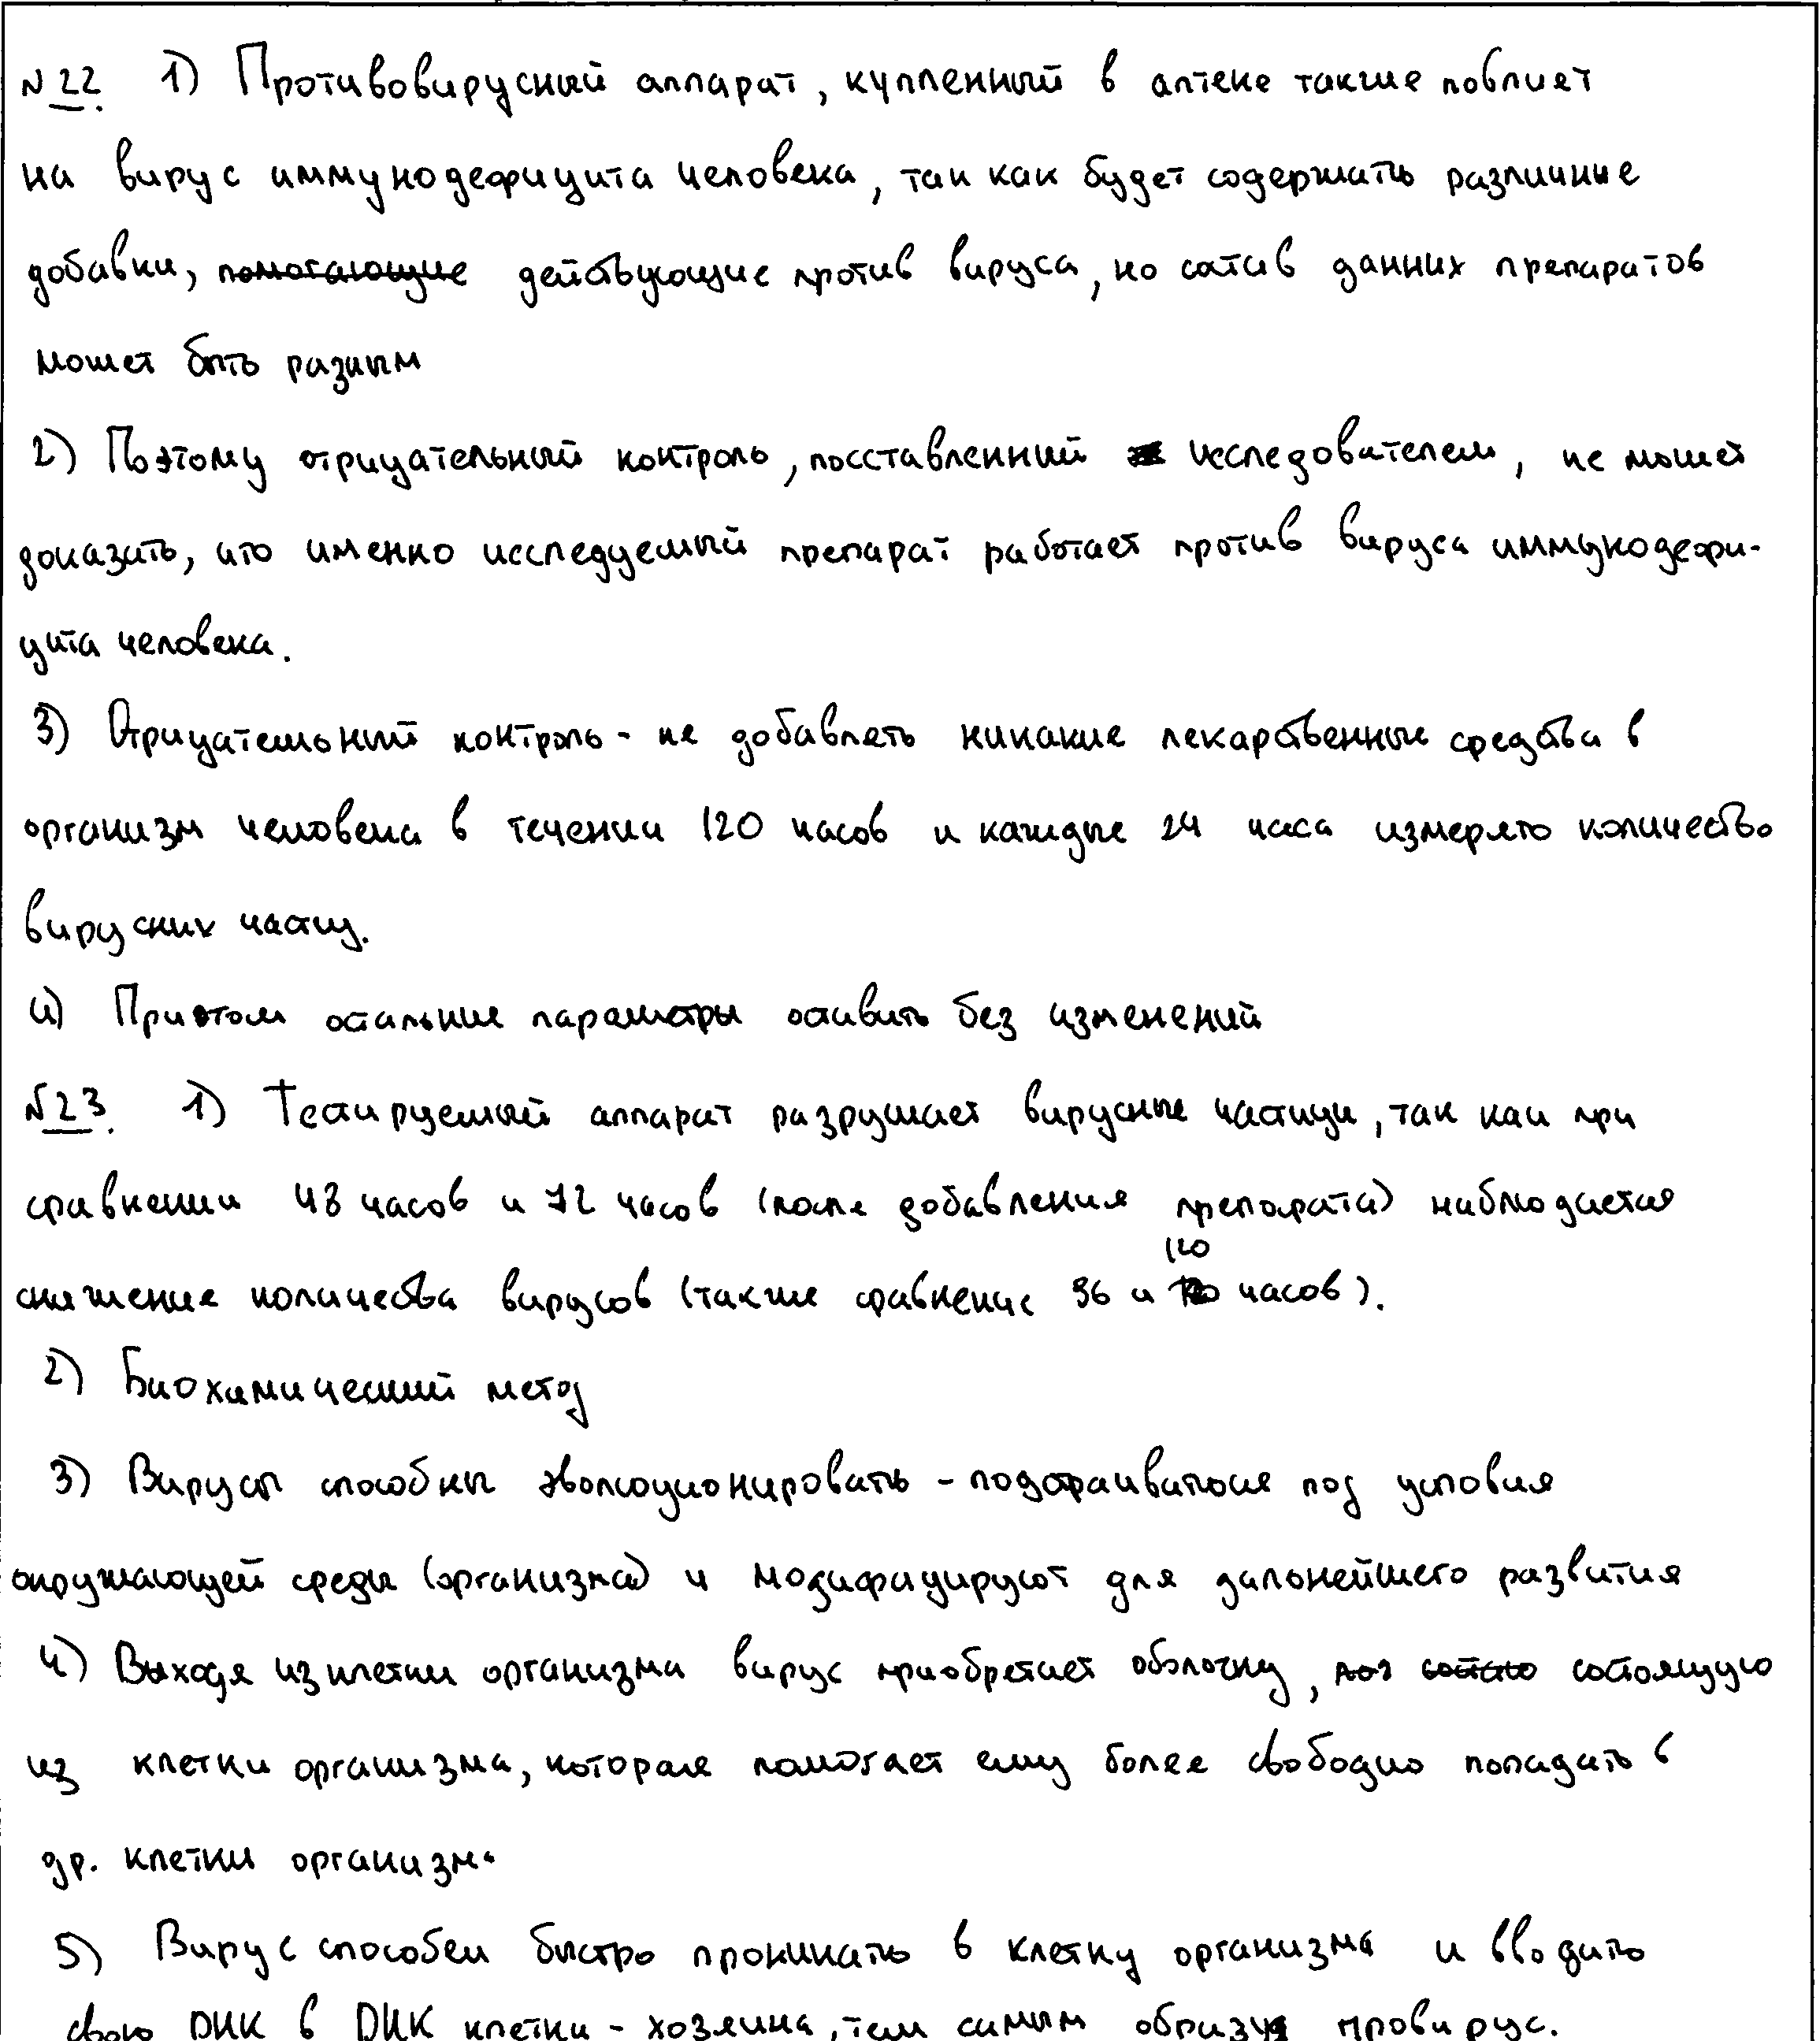 №22. 1) Противовирусный аппарат, купленный в аптеке также повлиет
на вирус иммунодефицита человека, так как будет содержать различные
добавки, помогающие действующие против вируса, но состав данных препаратов
может быть разным
2) Поэтому отрицательный контроль, посставленный исследователем, не может
доказать, что именно исследуемый препарат работает против вируса иммунодефи-
цита человека.
3) Отрицательный контроль - не добавлять никакие лекарственные средства в
организм человека в течении 120 часов и каждые 24 часа измерять количество
вирусних частиц.
4) При этом остальные параметры оставить без изменений
№23. 1) Тестируемый аппарат разрушает вирусные частицы, так как при
сравнении 48 часов и 72 часов (после добавления препарата) наблюдается
120
снижение количества вирусов (также сравнение 96 и часов).
2) Биохимический метод
3) Вирусы способны эволюционировать - подстраиваться под условия
окружающей среды (организма) и модифицируют для дальнейшего развития
4) Выходя из клетки организма вирус приобретает оболочку, состоящую
из клетки организма, которая помогает ему более свободно попадать в
др. клетки организма
5) Вирус способен быстро проникать в клетку организма и вводить
свою ДНК в ДНК клетки - хозяина, тем самым образуя провирус.